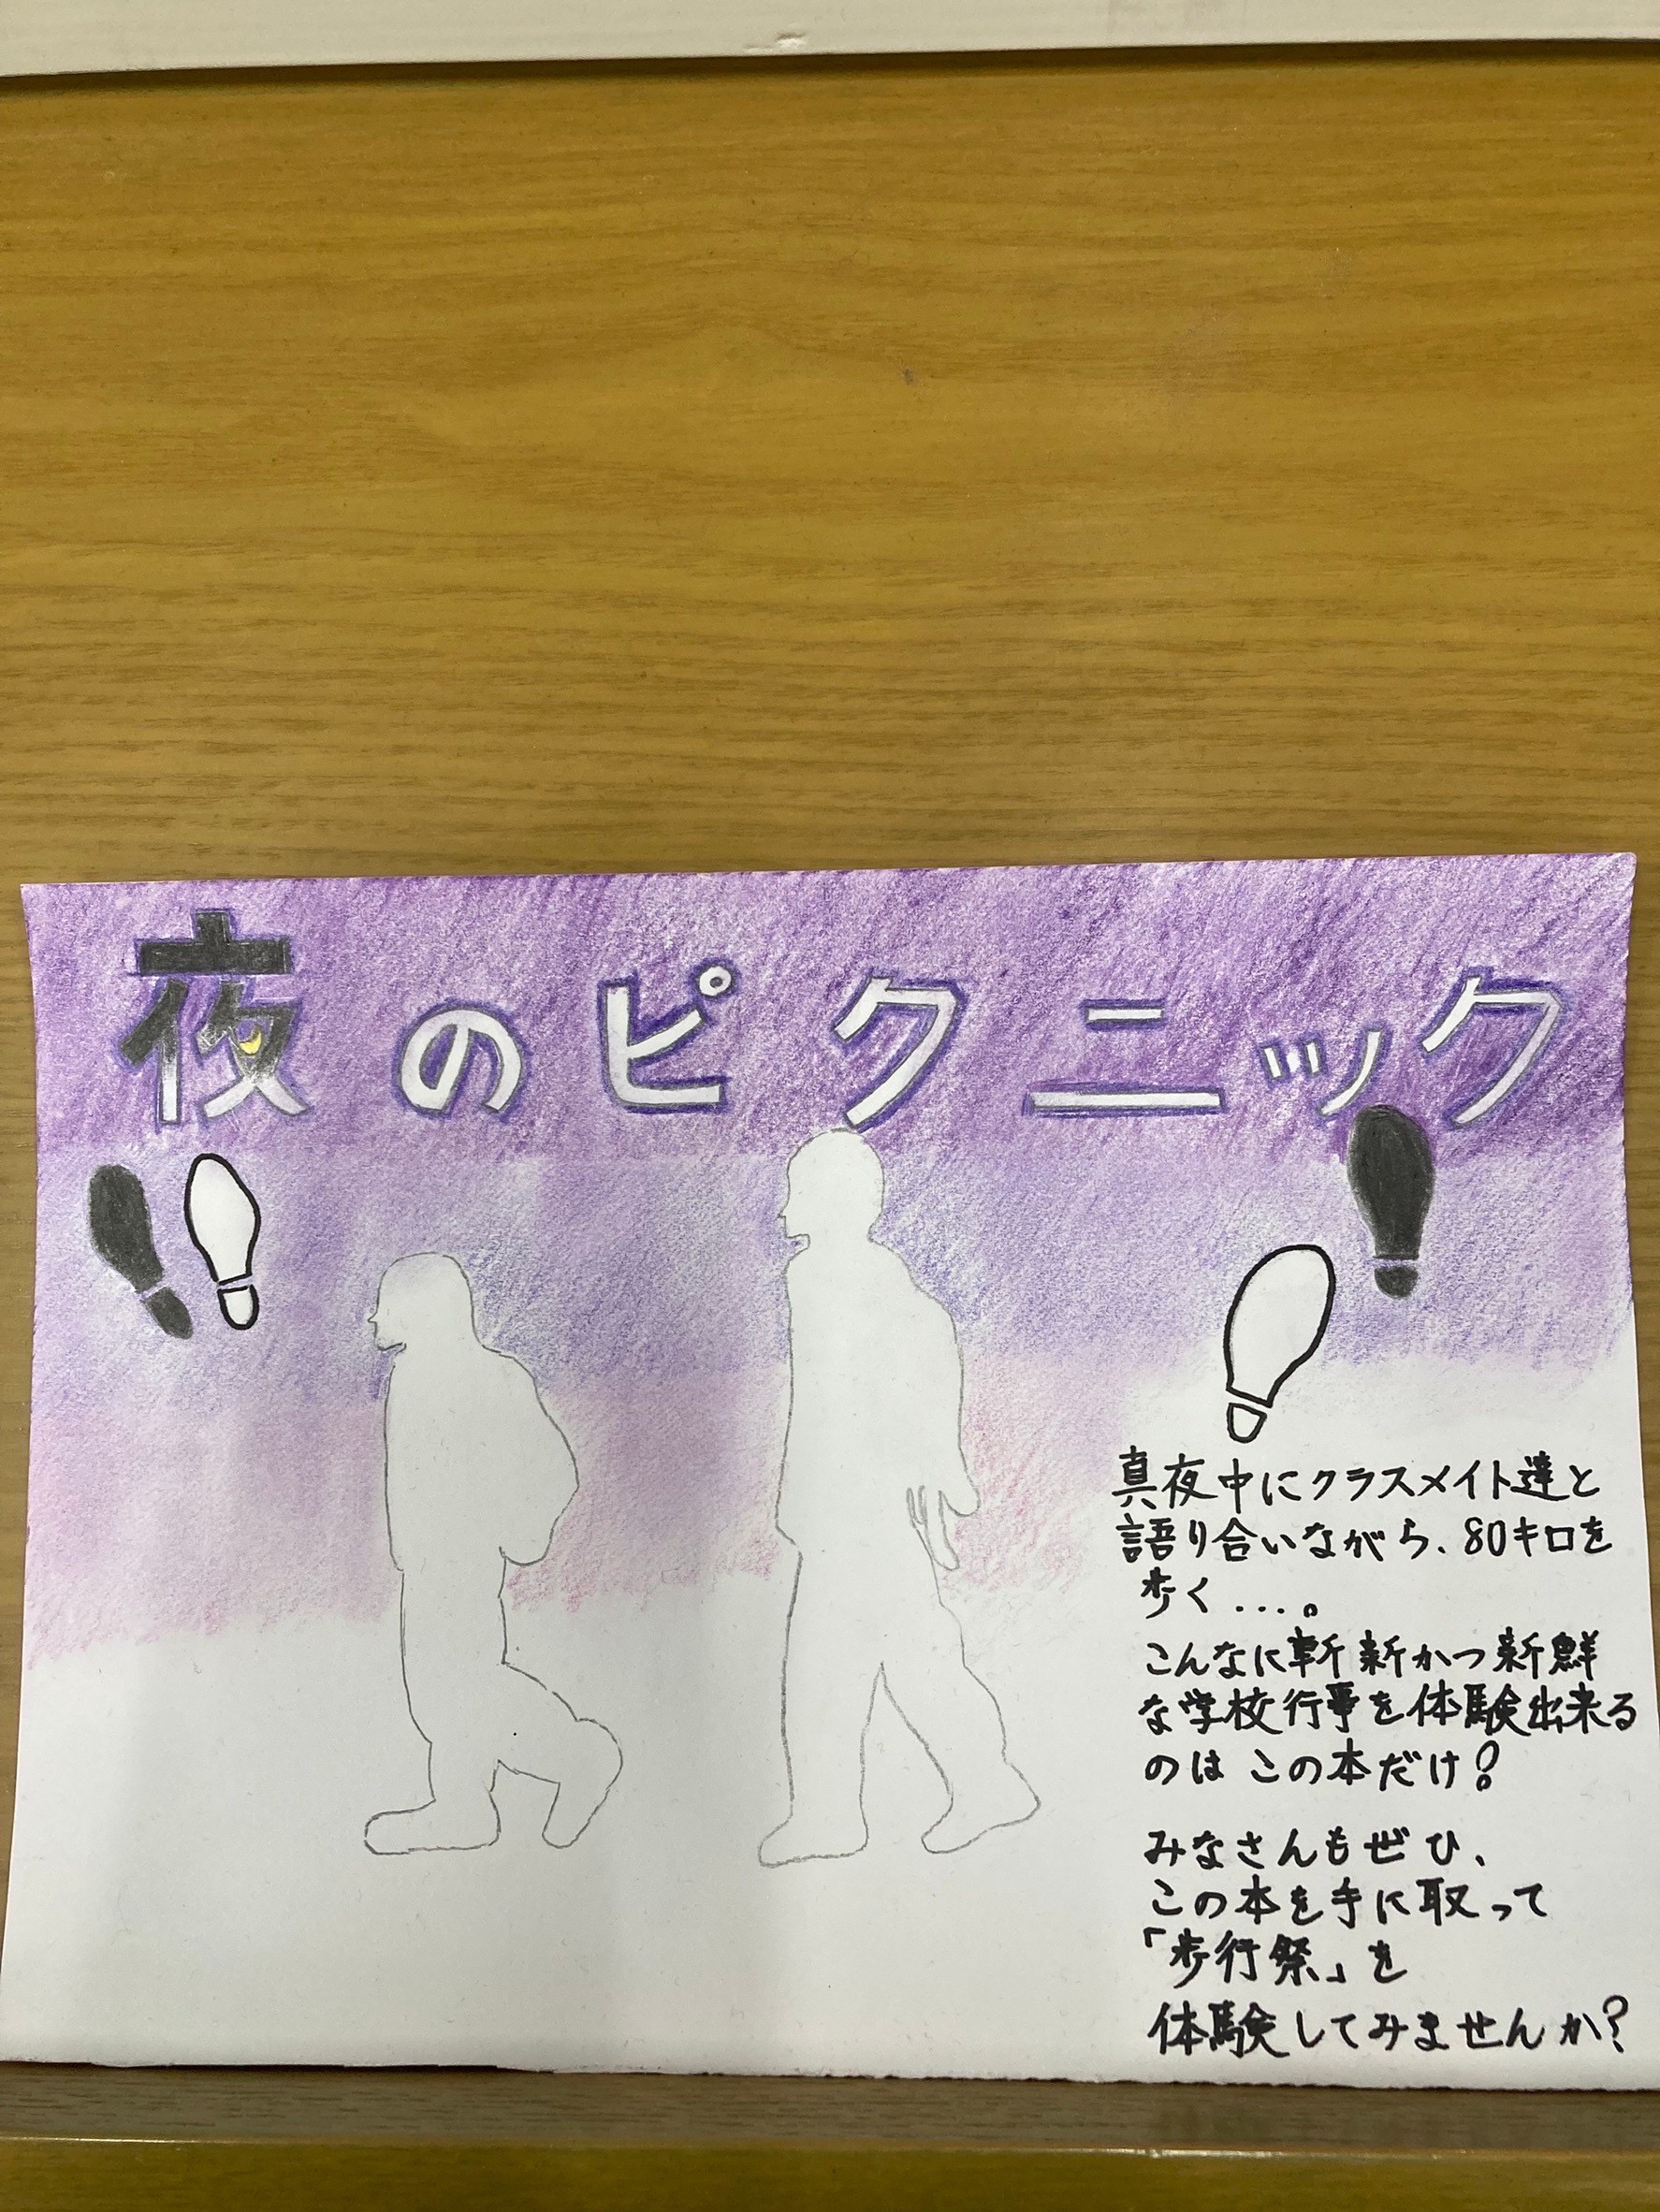 夜のピクニック
真夜中にクラスメイト達と
語り合いながら、80キロを
歩く...。
こんなに斬新かつ新鮮
な学校行事を体験出来る
のは この本だけ!
みなさんもぜひ、
この本を手に取って
「歩行祭」を
体験してみませんか?